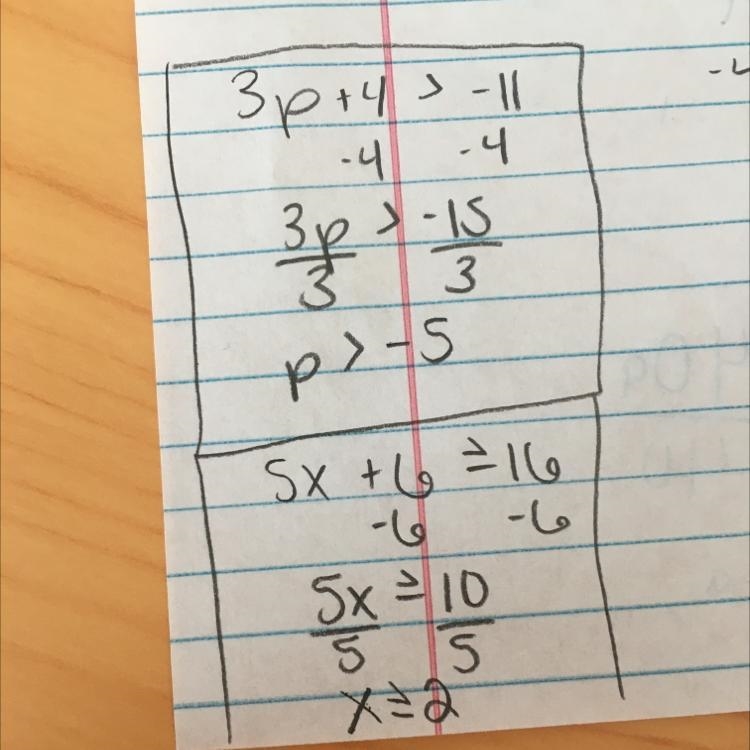 3p + 4 > -11
-4 -4
3p > -15
3 3
p > -5
5x + 6 ≥ 16
-6 -6
5x ≥ 10
5 5
x ≥ 2